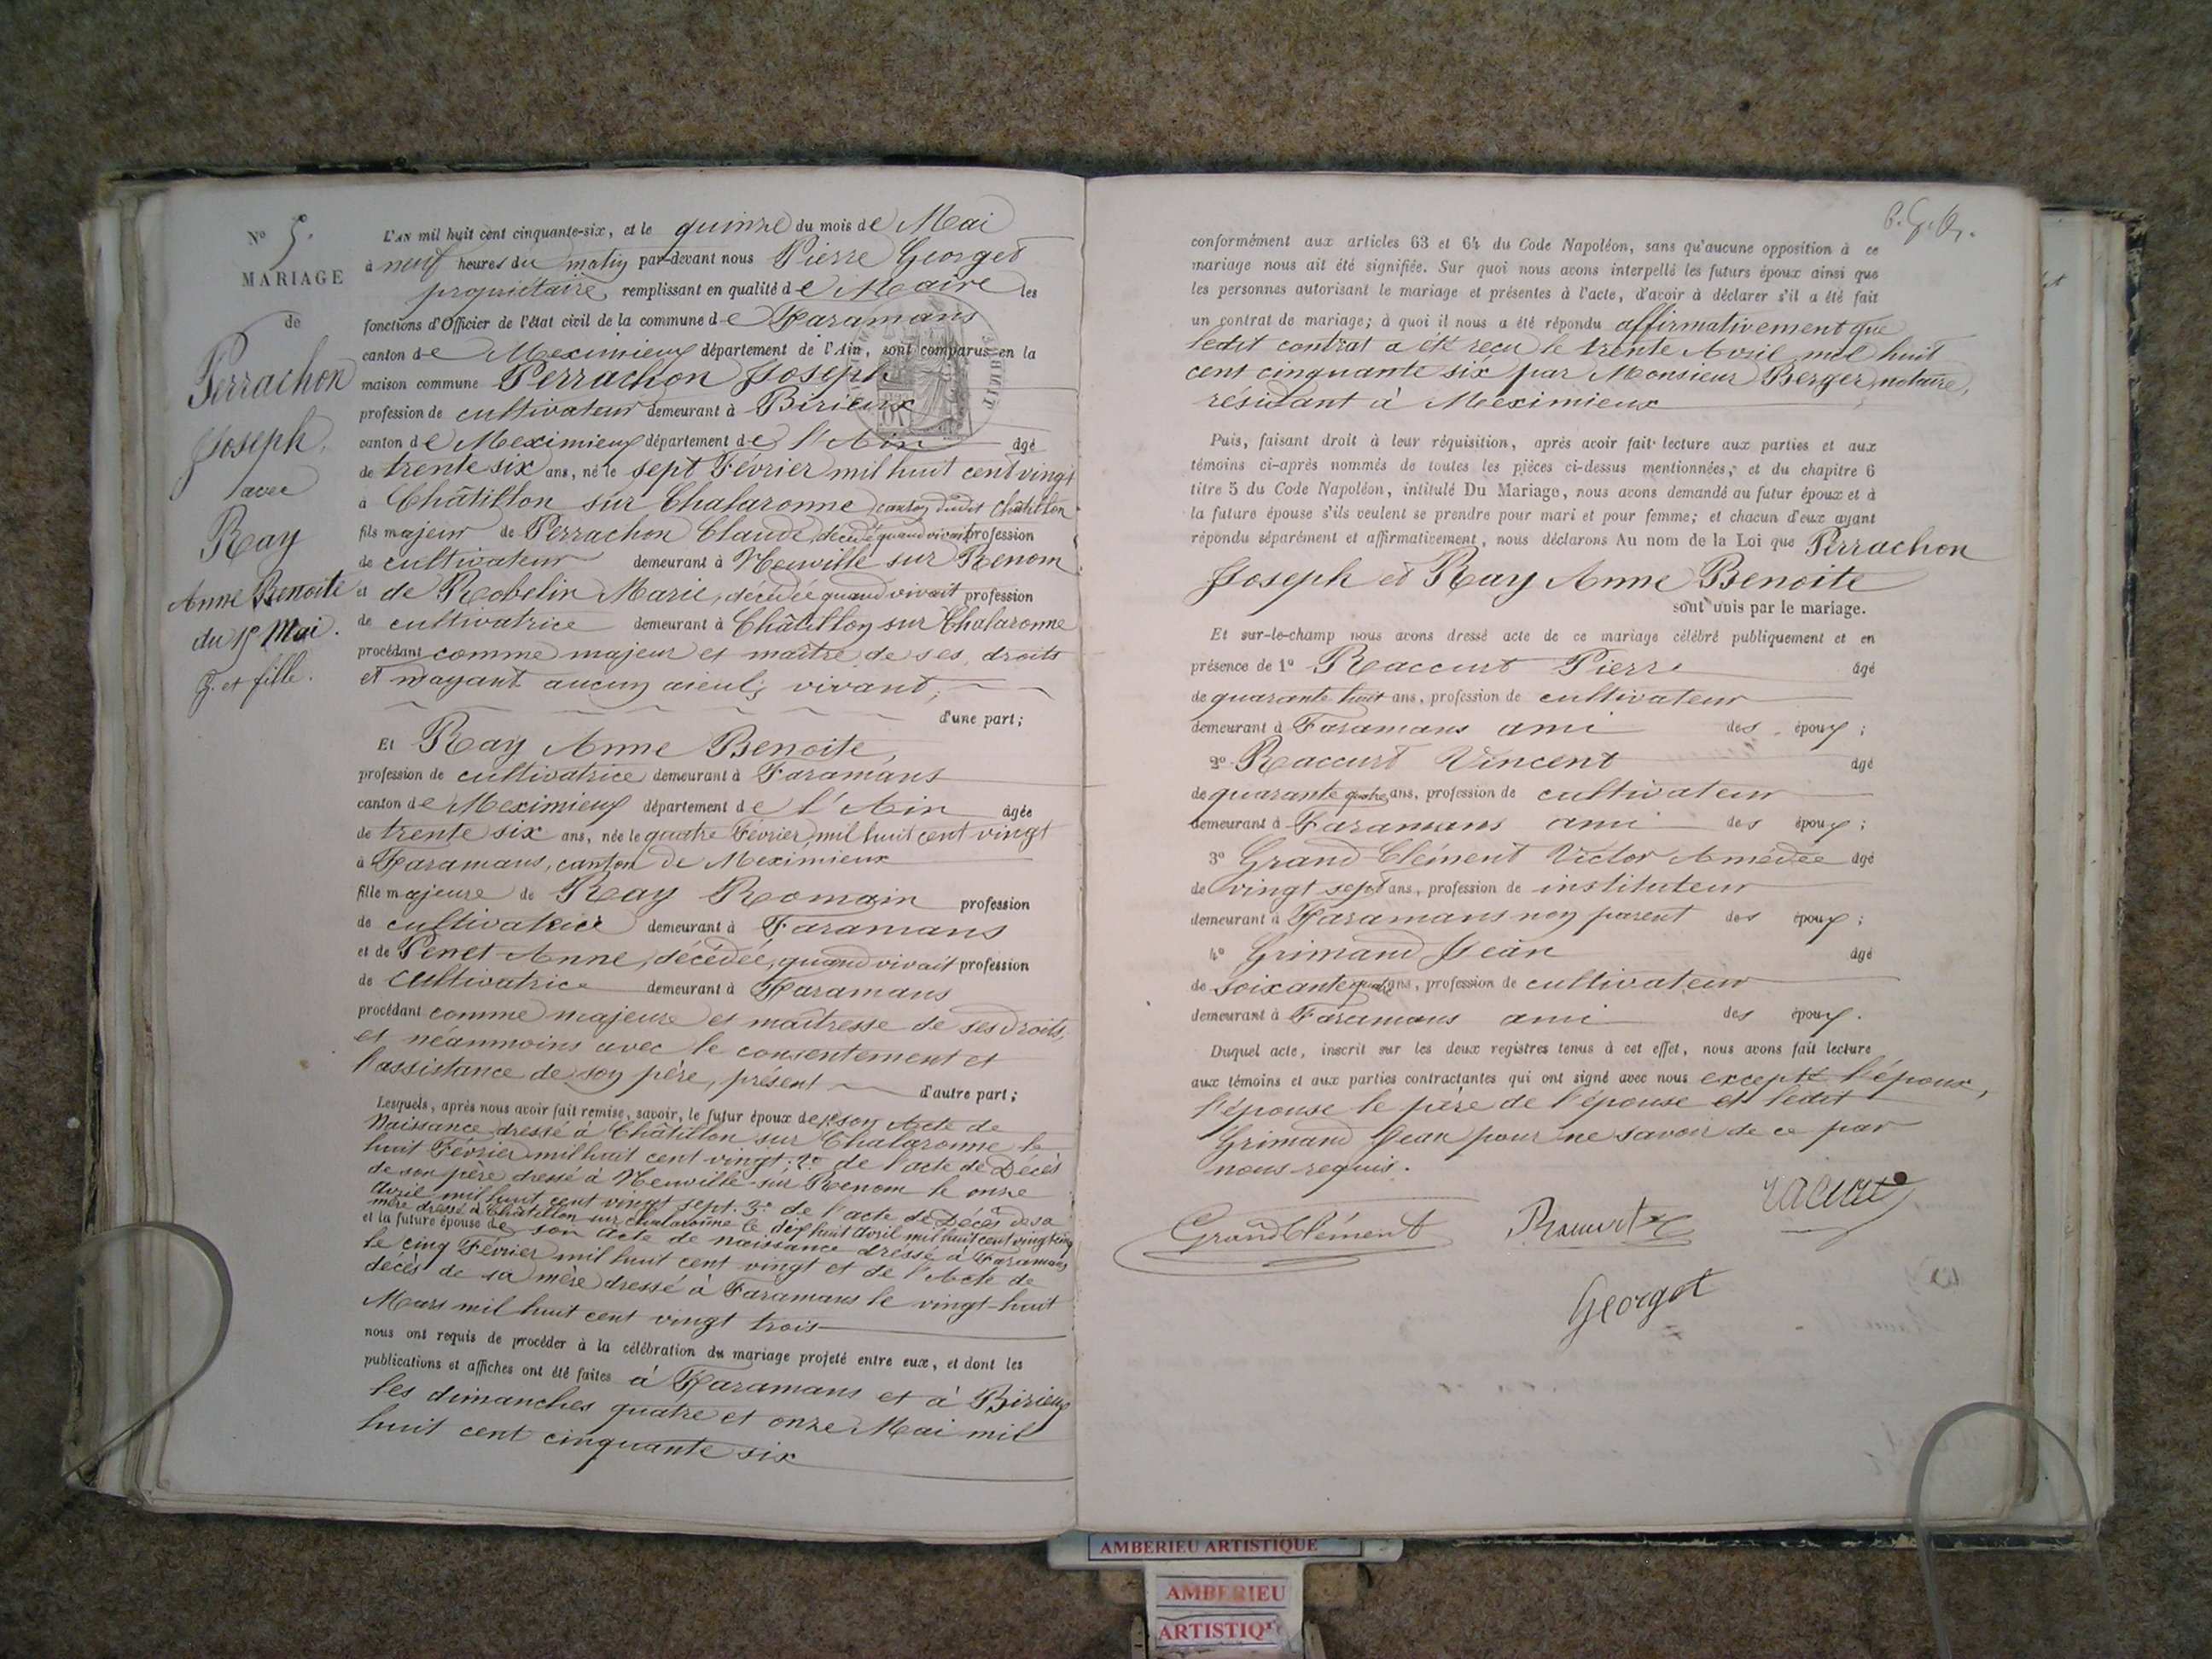 N° 5.
MARIAGE
de
Perrachon
Joseph,
avec
Ray
Anne Benoite
du 15 Mai.
G. et fille.
L'AN mil huit cent cinquante-six, et le quinze du mois de Mai
à neuf heures du matin par-devant nous Pierre Georget
propriétaire, remplissant en qualité de Maire les
fonctions d'Officier de l'état civil de la commune de Faramans
canton de Meximieux département de l'Ain, sont comparus en la
maison commune Perrachon Joseph
profession de cultivateur demeurant à Birieux
canton de Meximieux département de l'Ain âgé
de trente six ans, né le sept Février mil huit cent vingt
à Châtillon sur Chalaronne, canton dudit Châtillon
fils majeur de Perrachon Claude, décédé quand vivait profession
de cultivateur demeurant à Neuville sur Renom
et de Robelin Marie, décédée quand vivait profession
de cultivatrice demeurant à Châtillon sur Chalaronne
procédant comme majeur et maître de ses droits
et n'ayant aucun aïeuls vivant,
d'une part;
Et Ray Anne Benoite,
profession de cultivatrice demeurant à Faramans
canton de Meximieux département de l'Ain âgée
de trente six ans, née le quatre Février mil huit cent vingt
à Faramans, canton de Meximieux
fille majeure de Ray Romain profession
de cultivatrice demeurant à Faramans
et de Penet Anne, décédée, quand vivait profession
de cultivatrice demeurant à Faramans
procédant comme majeure et maîtresse de ses droits,
et néanmoins avec le consentement et
l'assistance de son père, présent d'autre part;
Lesquels, après nous avoir fait remise, savoir, le futur époux de 1° son Acte de
Naissance dressé à Châtillon sur Chalaronne le
huit Février mil huit cent vingt. 2° de l'acte de Décès
de son père dressé à Neuville-sur Renom le onze
Avril mil huit cent vingt sept. 3° de l'acte de Décès de sa
mère dressé à Châtillon sur Chalaronne le dix huit Avril mil huit cent vingt cinq
et la future épouse de son Acte de naissance dressé à Faramans
le cinq Février mil huit cent vingt et de l'Acte de
décès de sa mère dressé à Faramans le vingt-huit
Mars mil huit cent vingt trois
nous ont requis de procéder à la célébration du mariage projeté entre eux, et dont les
publications et affiches ont été faites à Faramans et à Birieux
les dimanches quatre et onze Mai mil
huit cent cinquante six
conformément aux articles 63 et 64 du Code Napoléon, sans qu'aucune opposition à ce
mariage nous ait été signifiée. Sur quoi nous avons interpellé les futurs époux ainsi que
les personnes autorisant le mariage et présentes à l'acte, d'avoir à déclarer s'il a été fait
un contrat de mariage; à quoi il nous a été répondu affirmativement que
ledit contrat a été reçu le trente Avril mil huit
cent cinquante six par Monsieur Berger, notaire,
résidant à Meximieux
Puis, faisant droit à leur réquisition, après avoir fait lecture aux parties et aux
témoins ci-après nommés de toutes les pièces ci-dessus mentionnées, et du chapitre 6
titre 5 du Code Napoléon, intitulé Du Mariage, nous avons demandé au futur époux et à
la future épouse s'ils veulent se prendre pour mari et pour femme; et chacun d'eux ayant
répondu séparément et affirmativement, nous déclarons Au nom de la Loi que Perrachon
Joseph et Ray Anne Benoite
sont unis par le mariage.
Et sur-le-champ nous avons dressé acte de ce mariage célébré publiquement et en
présence de 1° Raccurt Pierre âgé
de quarante huit ans, profession de cultivateur
demeurant à Faramans ami des époux;
2° Raccurt Vincent âgé
de quarante quatre ans, profession de cultivateur
demeurant à Faramans ami des époux;
3° Grand Clément Victor Amédée âgé
de vingt sept ans, profession de instituteur
demeurant à Faramans non parent des époux;
4° Grimand Jean âgé
de soixante quatre ans, profession de cultivateur
demeurant à Faramans ami des époux.
Duquel acte, inscrit sur les deux registres tenus à cet effet, nous avons fait lecture
aux témoins et aux parties contractantes qui ont signé avec nous excepté l'époux,
l'épouse le père de l'épouse et ledit
Grimand Jean pour ne savoir de ce par
nous requis.
Grand Clément
Georget
AMBERIEU ARTISTIQUE
AMBERIEU
ARTISTIQ